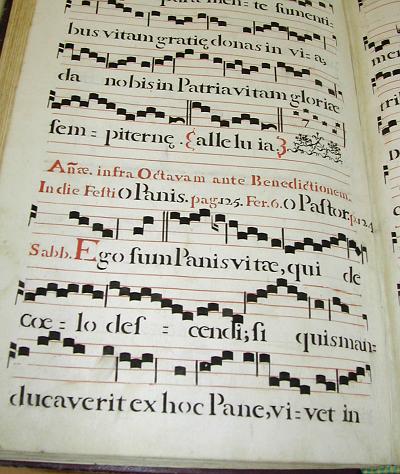 para men = te sumenti=
bus vitam gratię donas in vi = a;
da nobis in Patria vitam gloriæ
sem = piternę. alle lu ia.
Añæ. infra Octavam ante Benedictionem.
In die Festi O Panis. pag. 125. Fer. 6. O Pastor. p. 124.
Sabb. Ego sum Panis vitæ, qui de
cœ = lo des = cendi; si quis man=
ducaverit ex hoc Pane, vi = vet in